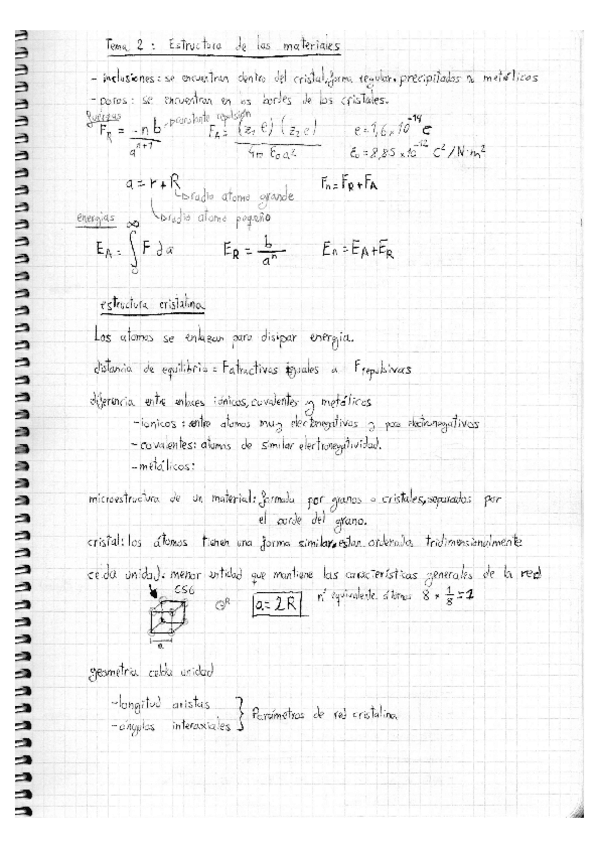 Tema 2: Estructura de los materiales
- inclusiones: se encuentran dentro del cristal, forma regular. precipitados metálicos
- poros: se encuentran en los bordes de los cristales.
fuerzas
F_R = -n b / a^(n+1) constante repulsión F_A = (z₁ e) (z₂ e) / 4π ε₀ a² e = 1,6 × 10^-19 C
ε₀ = 8,85 × 10^-12 C²/N·m²
a = r + R F_n = F_R + F_A
radio atomo grande
radio atomo pequeño
energías
E_A = ∫ ∞ F da E_R = b / a^n E_n = E_A + E_R
estructura cristalina
Los atomos se enlazan para disipar energia.
distancia de equilibrio = F atractivas iguales a F repulsivas
diferencia entre enlaces iónicos, covalentes y metálicos
- ionicos: entre atomos muy electronegativos y poco electronegativos
- covalentes: atomos de similar electronegatividad.
- metálicos:
microestructura de un material: formada por granos o cristales, separados por
el borde del grano.
cristal: los átomos tienen una forma similar, estan ordenada tridimensionalmente
celda unidad: menor entidad que mantiene las características generales de la red
R a = 2R nº equivalente átomos 8 × 1/8 = 1
a
geometria celda unidad
- longitud aristas
- ángulos interaxiales } Parámetros de red cristalina